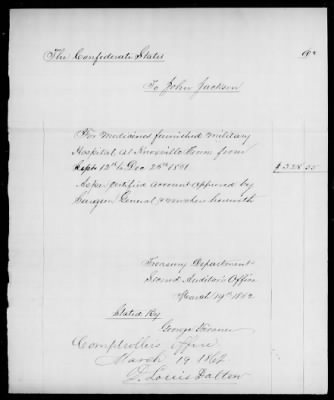 The Confederate States
To John Jackson
For Medicines furnished Military
Hospital at Knoxville Tenn from
Sept 12th to Dec 28th 1861 $328 55
As per certified account approved by
Surgeon General & voucher herewith
Treasury Department
Second Auditor's Office
March 19th 1862
Stated By
George
Comptroller's Office
March 19 1862
J. Louis Dalton